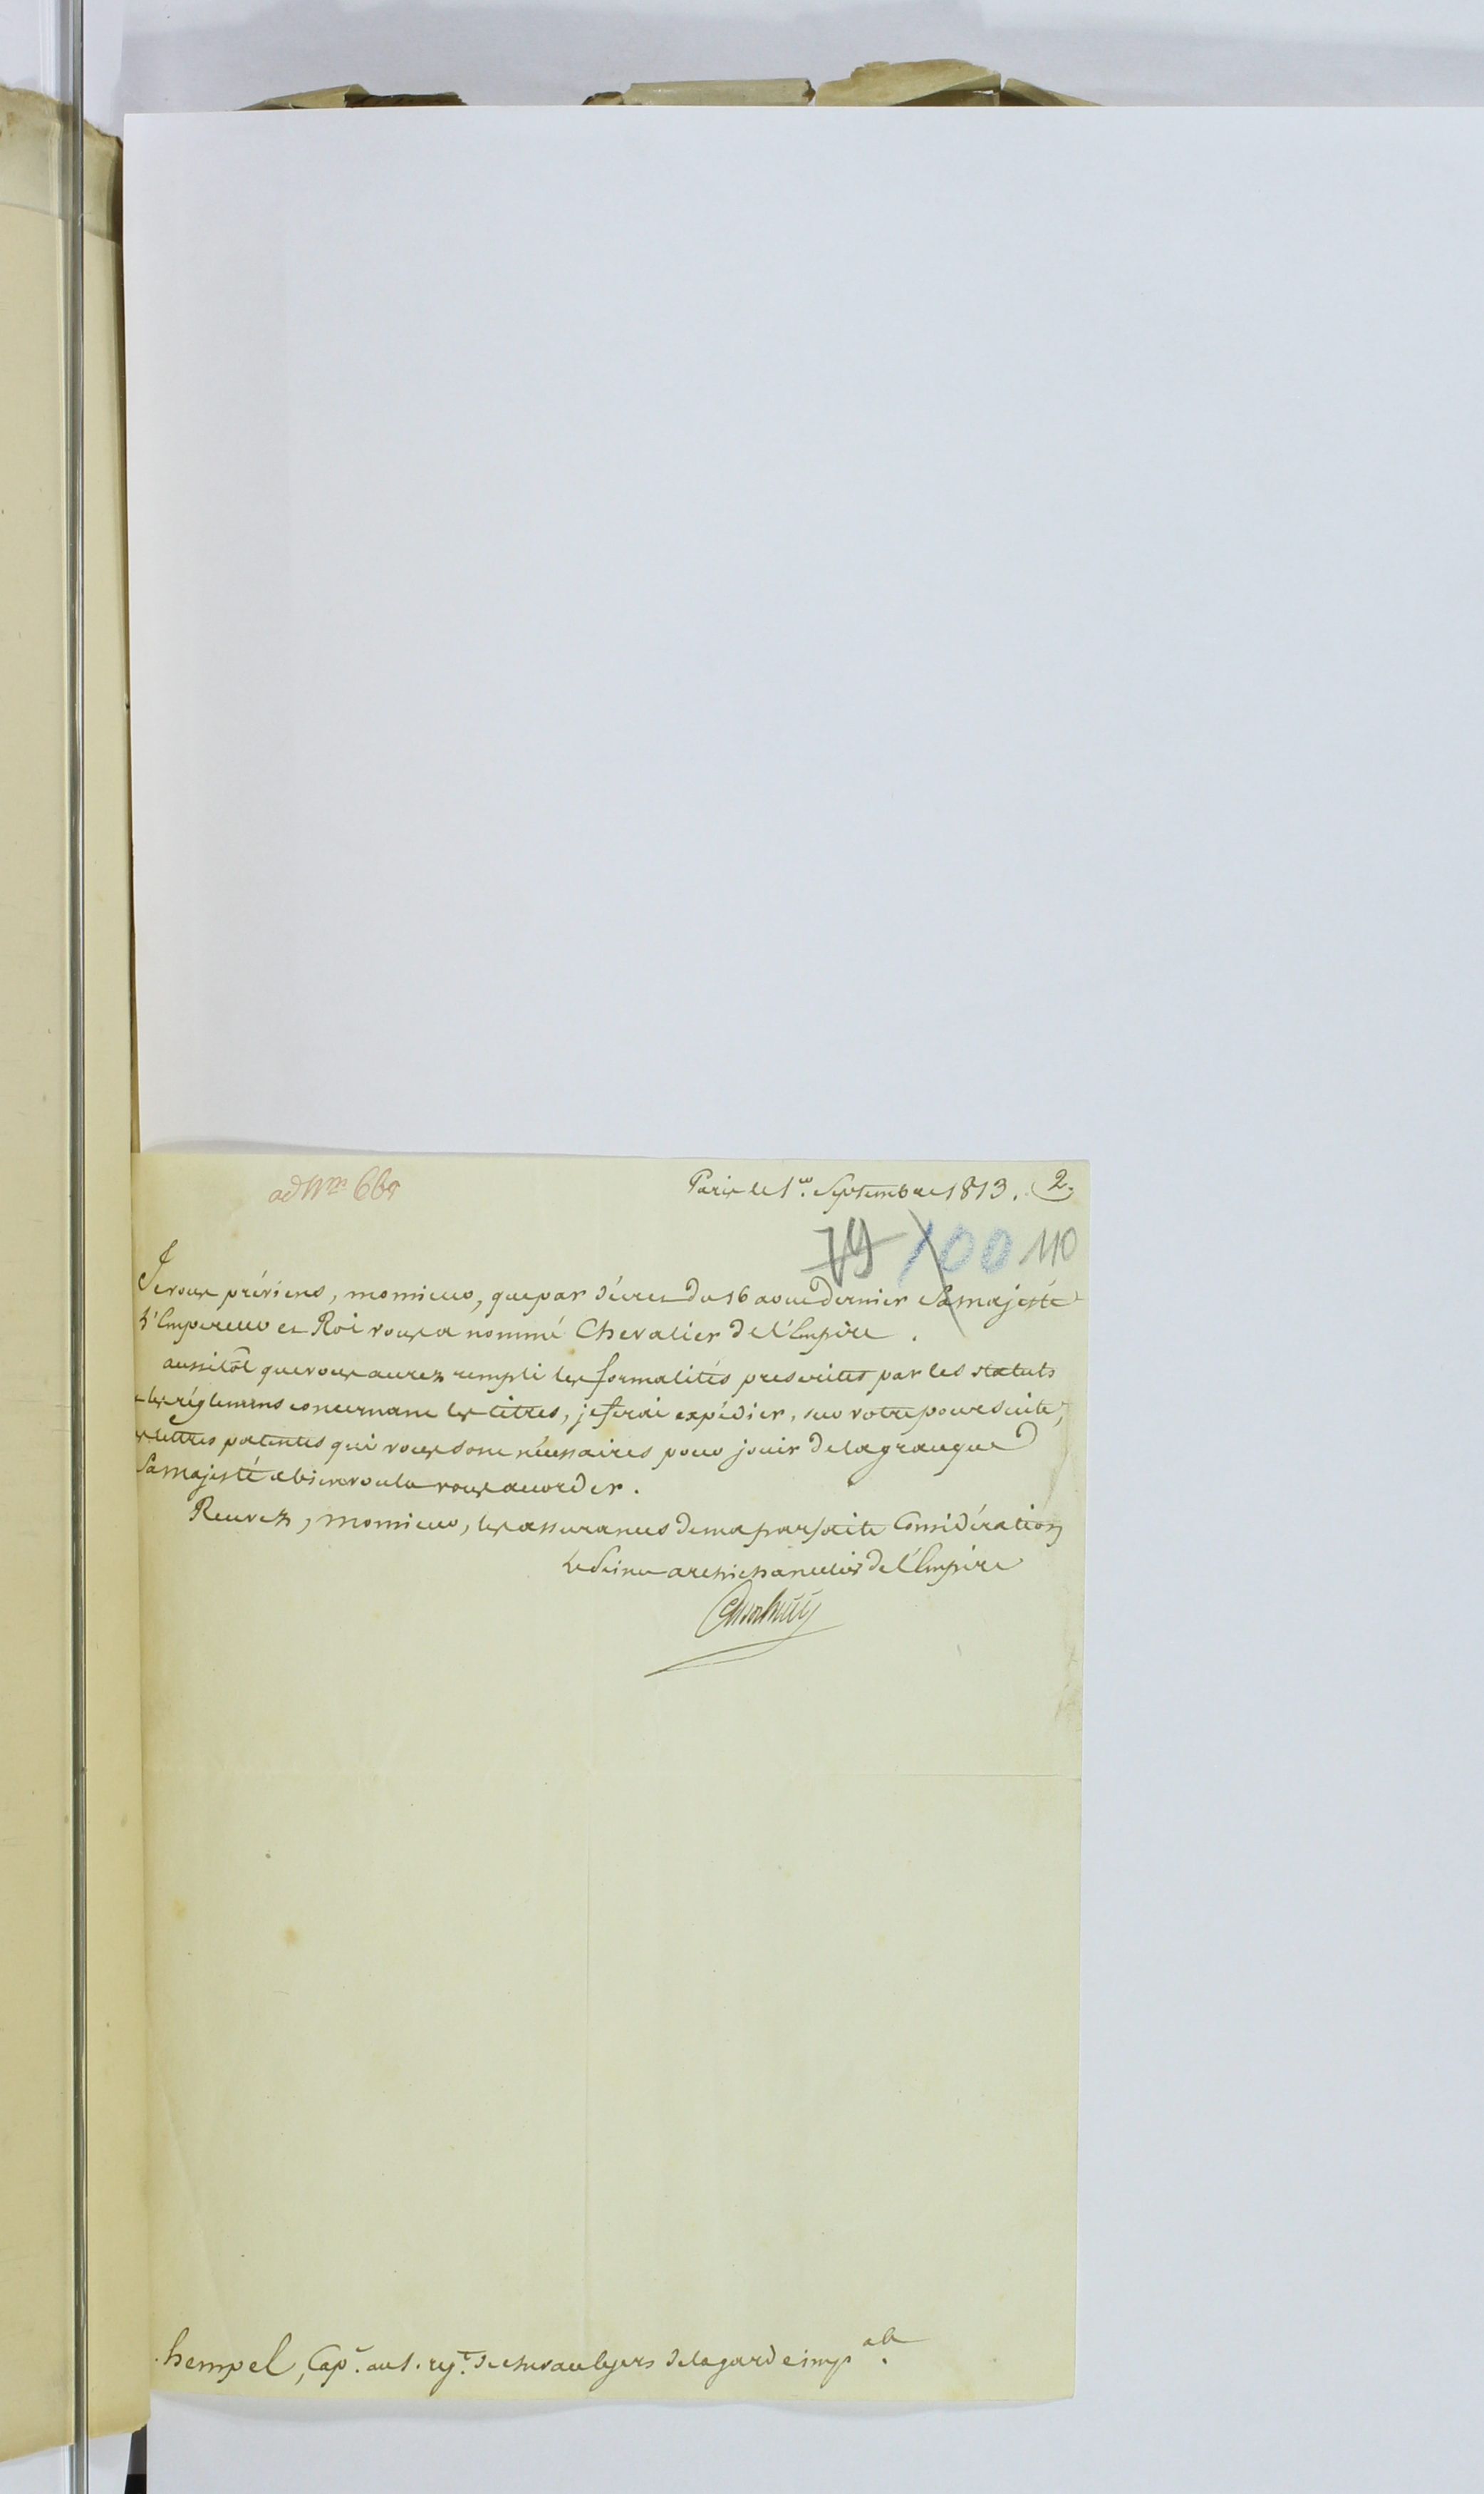 ad Nrm 668
Paris le 1er. Septembre 1813. 2.
79 100 110
Je vous préviens, monsieur, que par décret du 16 aout dernier Sa majesté
L'Empereur et Roi vous a nommé Chevalier de l'Empire.
aussitôt que vous aurez rempli les formalités prescrites par les statuts
et les réglemens concernant les titres, je ferai expédier, sur votre poursuite,
les lettres patentes qui vous sont nécessaires pour jouir de la grace que
Sa majesté a bien voulu vous accorder.
Recevez, monsieur, les assurances de ma parfaite Considération
Le Prince archichancelier de l'Empire
hempel, Cap.e au 1. rgt. de chevaulegers de la garde imp.ale